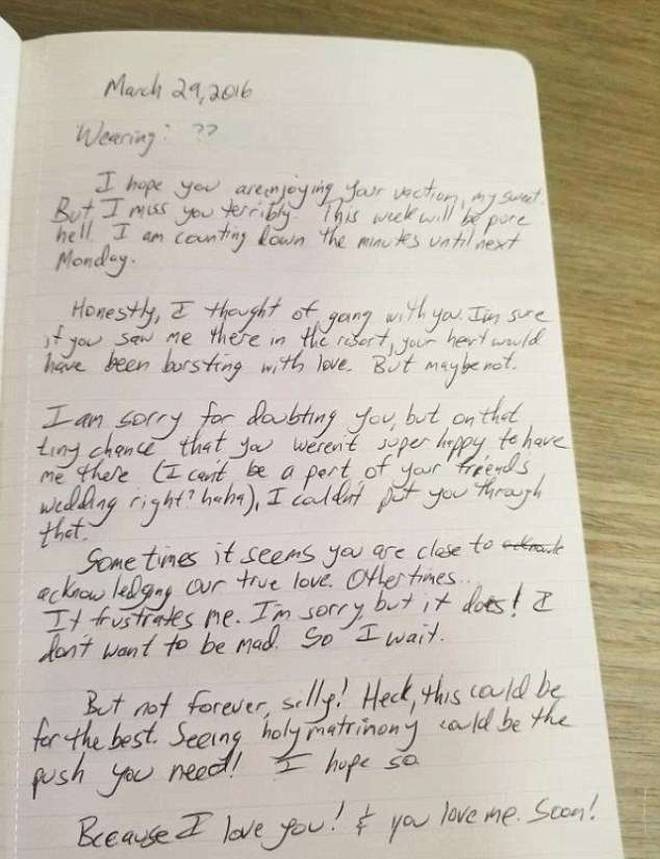 March 29, 2016
Wearing: ??
I hope you are enjoying your vaction, my sweet.
But I miss you terribly. This week will be pure
hell. I am counting down the minutes until next
Monday.
Honestly, I thought of going with you. I'm sure
if you saw me there in the resort, your heart would
have been bursting with love. But maybe not.
I am sorry for doubting you, but on that
tiny chance that you weren't super happy to have
me there (I can't be a part of your friend's
wedding right? haha), I couldn't put you through
that.
Sometimes it seems you are close to
acknowledging our true love. Other times..
It frustrates me. I'm sorry, but it does! I
don't want to be mad. So I wait.
But not forever, silly! Heck, this could be
for the best. Seeing holy matrimony could be the
push you need! I hope so.
Because I love you! & you love me. Soon!